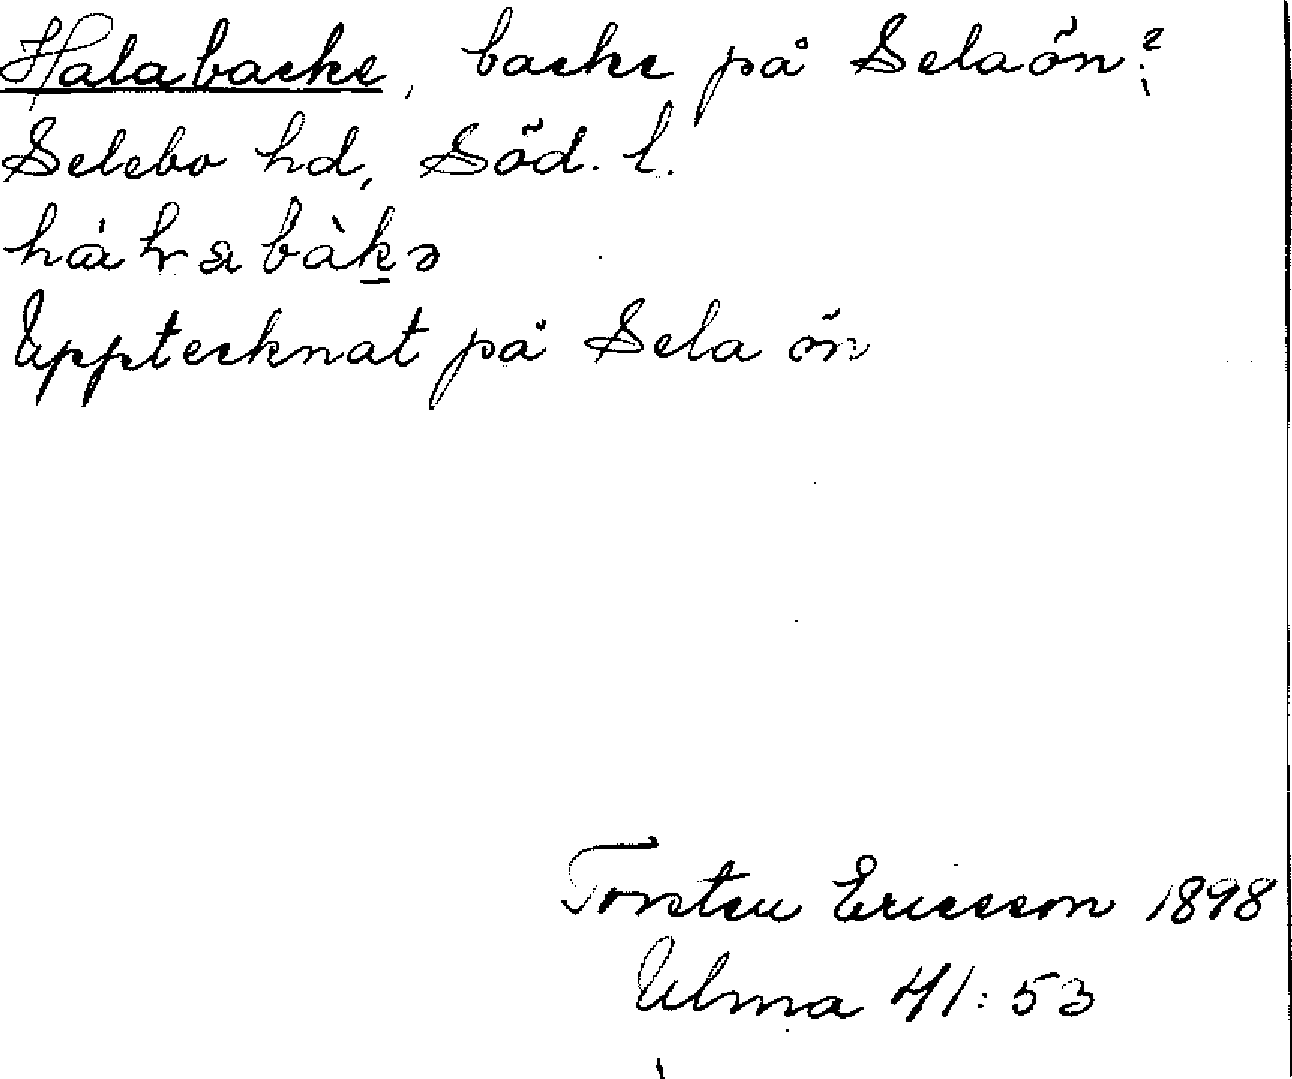 Halabacke, backe på Selaön?
Selebo hd, Söd. l.
Upptecknat på Sela ön
Torsten Ericsson 1898
Ulma 41:53